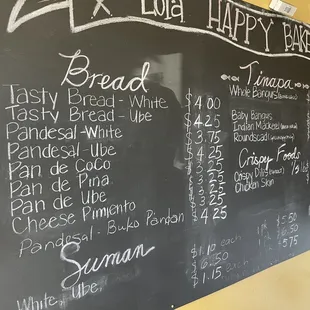 Lola HAPPY BAKE
Bread
Tasty Bread - White $4.00
Tasty Bread - Ube $4.25
Pandesal - White $3.75
Pandesal - Ube $4.25
Pan de CoCo $4.25
Pan de Pina $4.25
Pan de Ube $4.25
Cheese Pimiento $4.25
Pandesal - Buko Pandan
Suman
White, Ube,
$1.10 each
$6.50
$1.15 each
Tinapa
Whole Bangus
Baby Bangus
Indian Mackerel
Roundscad
Crispy Foods
Crispy Dilis
Chicken Skin
5.50
6.50
5.75